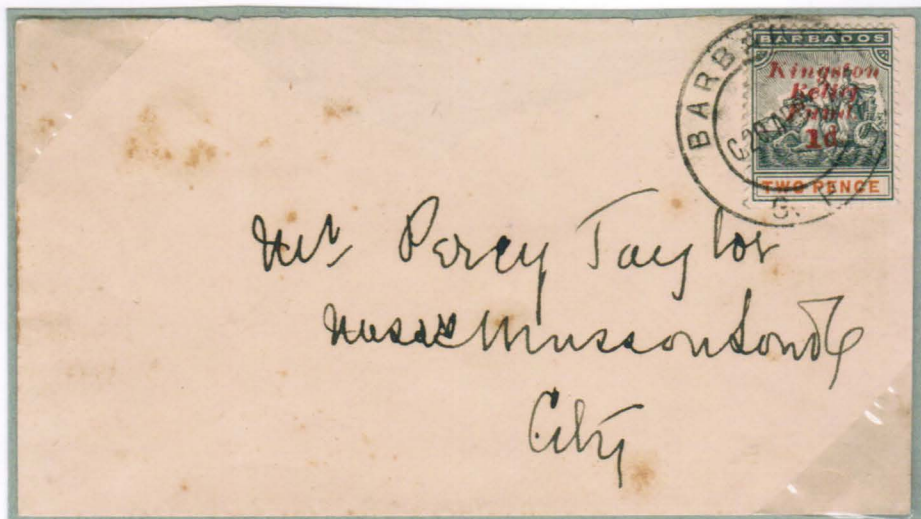 BARBADOS
Kingston
Relief
Fund.
1d.
TWO PENCE
BARBA
G.P.
Mr Percy Taylor
Messrs Musson Son & Co
City